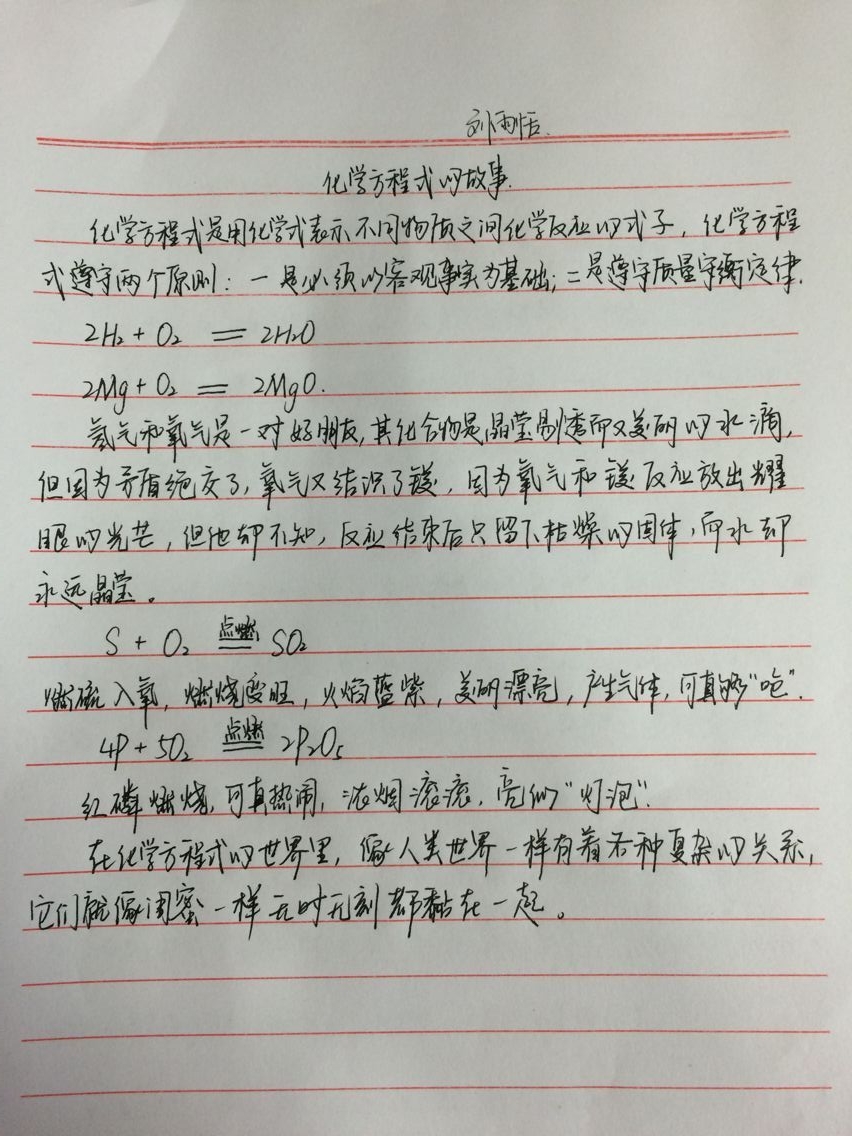 刘雨恬.
化学方程式的故事.
化学方程式是用化学式表示不同物质之间化学反应的式子，化学方程
式遵守两个原则：一是必须以客观事实为基础；二是遵守质量守衡定律.
2H₂ + O₂ ══ 2H₂O
2Mg + O₂ ══ 2MgO.
氢气和氧气是一对好朋友,其化合物是晶莹剔透而又美丽的水滴,
但因为矛盾绝交了,氧气又结识了镁，因为氧气和镁反应放出耀
眼的光芒，但他却不知，反应结束后只留下枯燥的固体，而水却
永远晶莹。
S + O₂ 点燃══ SO₂
燃硫入氧，燃烧变旺，火焰蓝紫，美丽漂亮，产生气体，可真够"呛".
4P + 5O₂ 点燃══ 2P₂O₅
红磷燃烧,可真热闹，浓烟滚滚，亮似"灯泡".
在化学方程式的世界里，像人类世界一样有着各种复杂的关系，
它们就像闺蜜一样无时无刻都黏在一起。